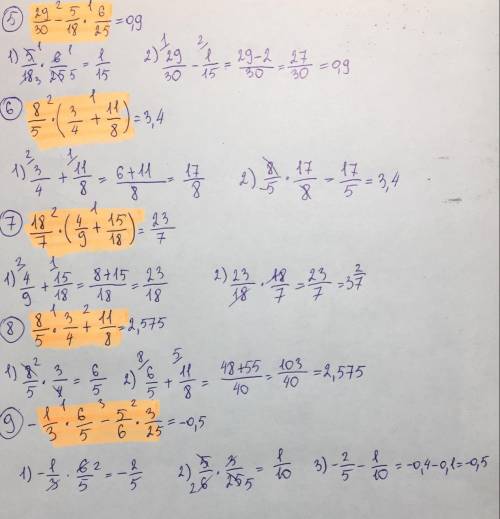 ⑤ 29/30 −² 5/18 ·¹ 6/25 = 0,9
1) 5¹/18₃ · 6¹/25₅ = 1/15 2) ¹⁾29/30 − ²⁾1/15 = 29-2/30 = 27/30 = 0,9
⑥ 8/5 ·² (3/4 +¹ 11/8) = 3,4
1) ²⁾3/4 + ¹⁾11/8 = 6+11/8 = 17/8 2) 8/5 · 17/8 = 17/5 = 3,4
⑦ 18/7 ·² (4/9 +¹ 15/18) = 23/7
1) ²⁾4/9 + ¹⁾15/18 = 8+15/18 = 23/18 2) 23/18 · 18/7 = 23/7 = 3 2/7
⑧ 8/5 ·¹ 3/4 +² 11/8 = 2,575
1) 8²/5 · 3/4 = 6/5 2) ⁸⁾6/5 + ⁵⁾11/8 = 48+55/40 = 103/40 = 2,575
⑨ -1/3 ·¹ 6/5 −³ 5/6 ·² 3/25 = -0,5
1) -1/3 · 6²/5 = -2/5 2) 5/₂6 · 3/25₅ = 1/10 3) -2/5 - 1/10 = -0,4-0,1 = -0,5